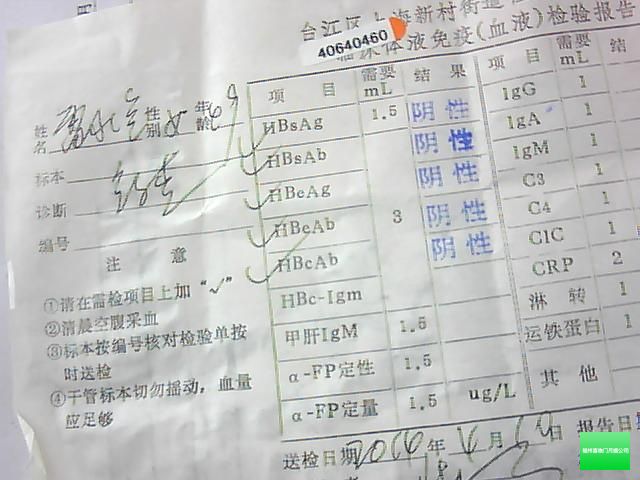 台江区上海新村街道
临床体液免疫(血液)检验报告
40640460
姓名 性别 女 年龄
标本
诊断
编号
注 意
①请在需检项目上加“√”
②清晨空腹采血
③标本按编号核对检验单按
时送检
④干管标本切勿摇动,血量
应足够
项 目 需要mL 结 果 项 目 需要mL 结
HBsAg 1.5 阴性 IgG 1
HBsAb 阴性 IgA 1
HBeAg 阴性 IgM 1
HBeAb 3 阴性 C3 1
HBcAb 阴性 C4 1
HBc-Igm C1C 1
甲肝IgM 1.5 CRP 2
α-FP定性 1.5 淋 转 1
α-FP定量 1.5 ug/L 运铁蛋白 1
其 他
送检日期2014年4月 日 报告日
福州喜徕门月嫂公司